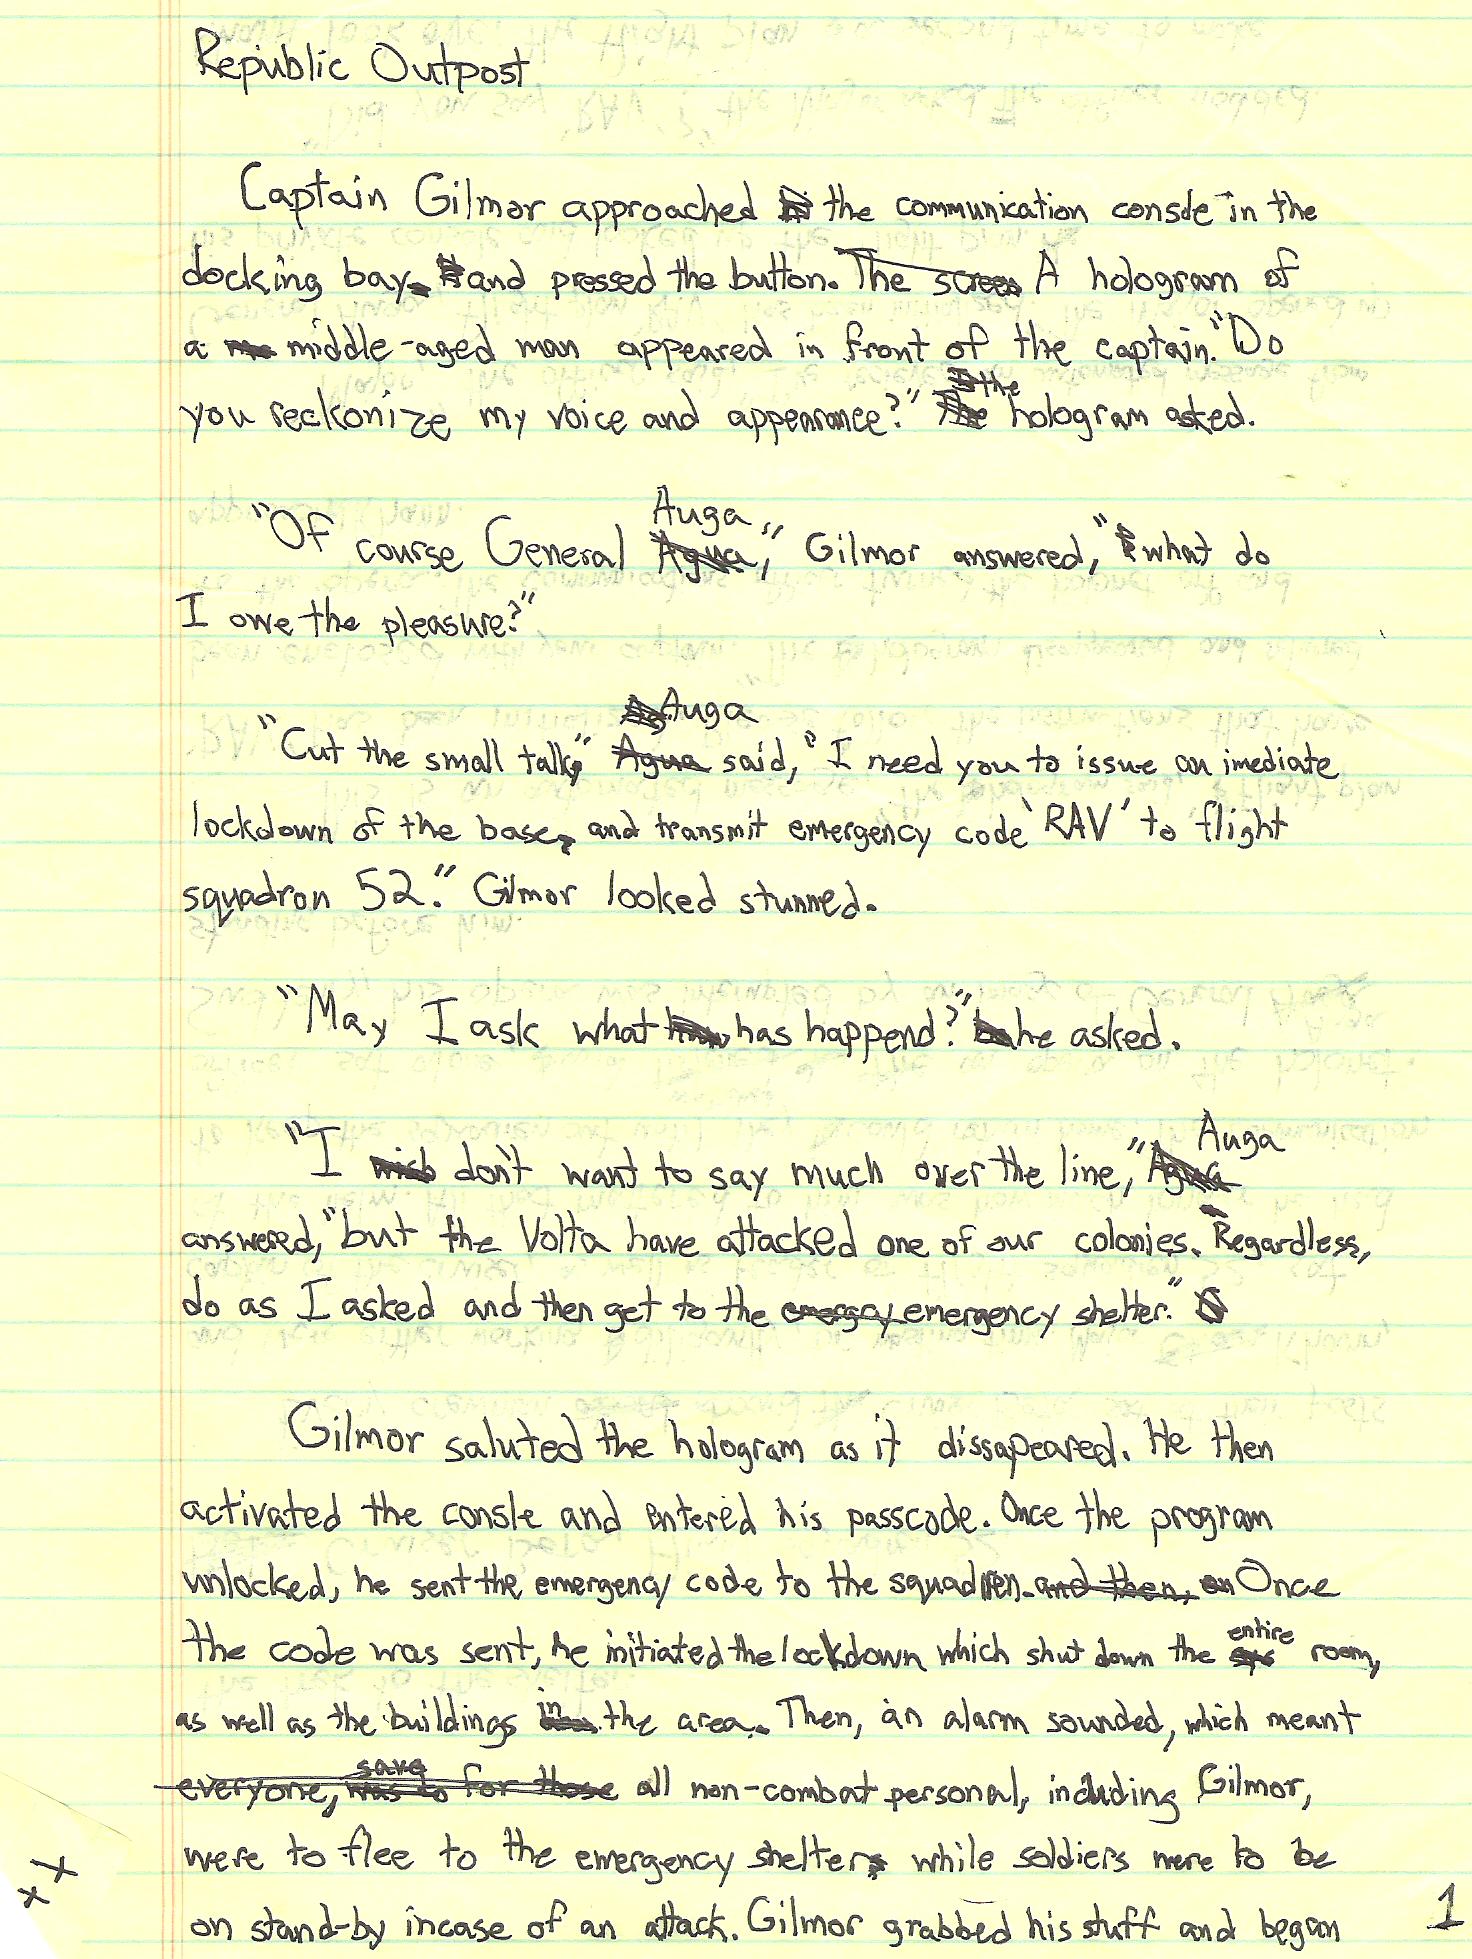 Republic Outpost
Captain Gilmor approached the communication consle in the
docking bay and pressed the button. The screen A hologram of
a middle-aged man appeared in front of the captain. "Do
you reckonize my voice and appearance?" the hologram asked.
"Of course General Auga," Gilmor answered, "what do
I owe the pleasure?"
"Cut the small talk," Auga said, "I need you to issue an imediate
lockdown of the base, and transmit emergency code 'RAV' to flight
squadron 52." Gilmor looked stunned.
"May I ask what has happend?" he asked.
"I don't want to say much over the line," Auga
answered, "but the Volta have attacked one of our colonies. Regardless,
do as I asked and then get to the emergcy emergency shelter."
Gilmor saluted the hologram as it dissapeared. He then
activated the consle and entered his passcode. Once the program
unlocked, he sent the emergency code to the squadren. and then, on Once
the code was sent, he initiated the lockdown which shut down the entire room,
as well as the buildings in the area. Then, an alarm sounded, which meant
everyone, save was to for those all non-combat personal, including Gilmor,
were to flee to the emergency shelter, while soldiers were to be
on stand-by incase of an attack. Gilmor grabbed his stuff and began
1